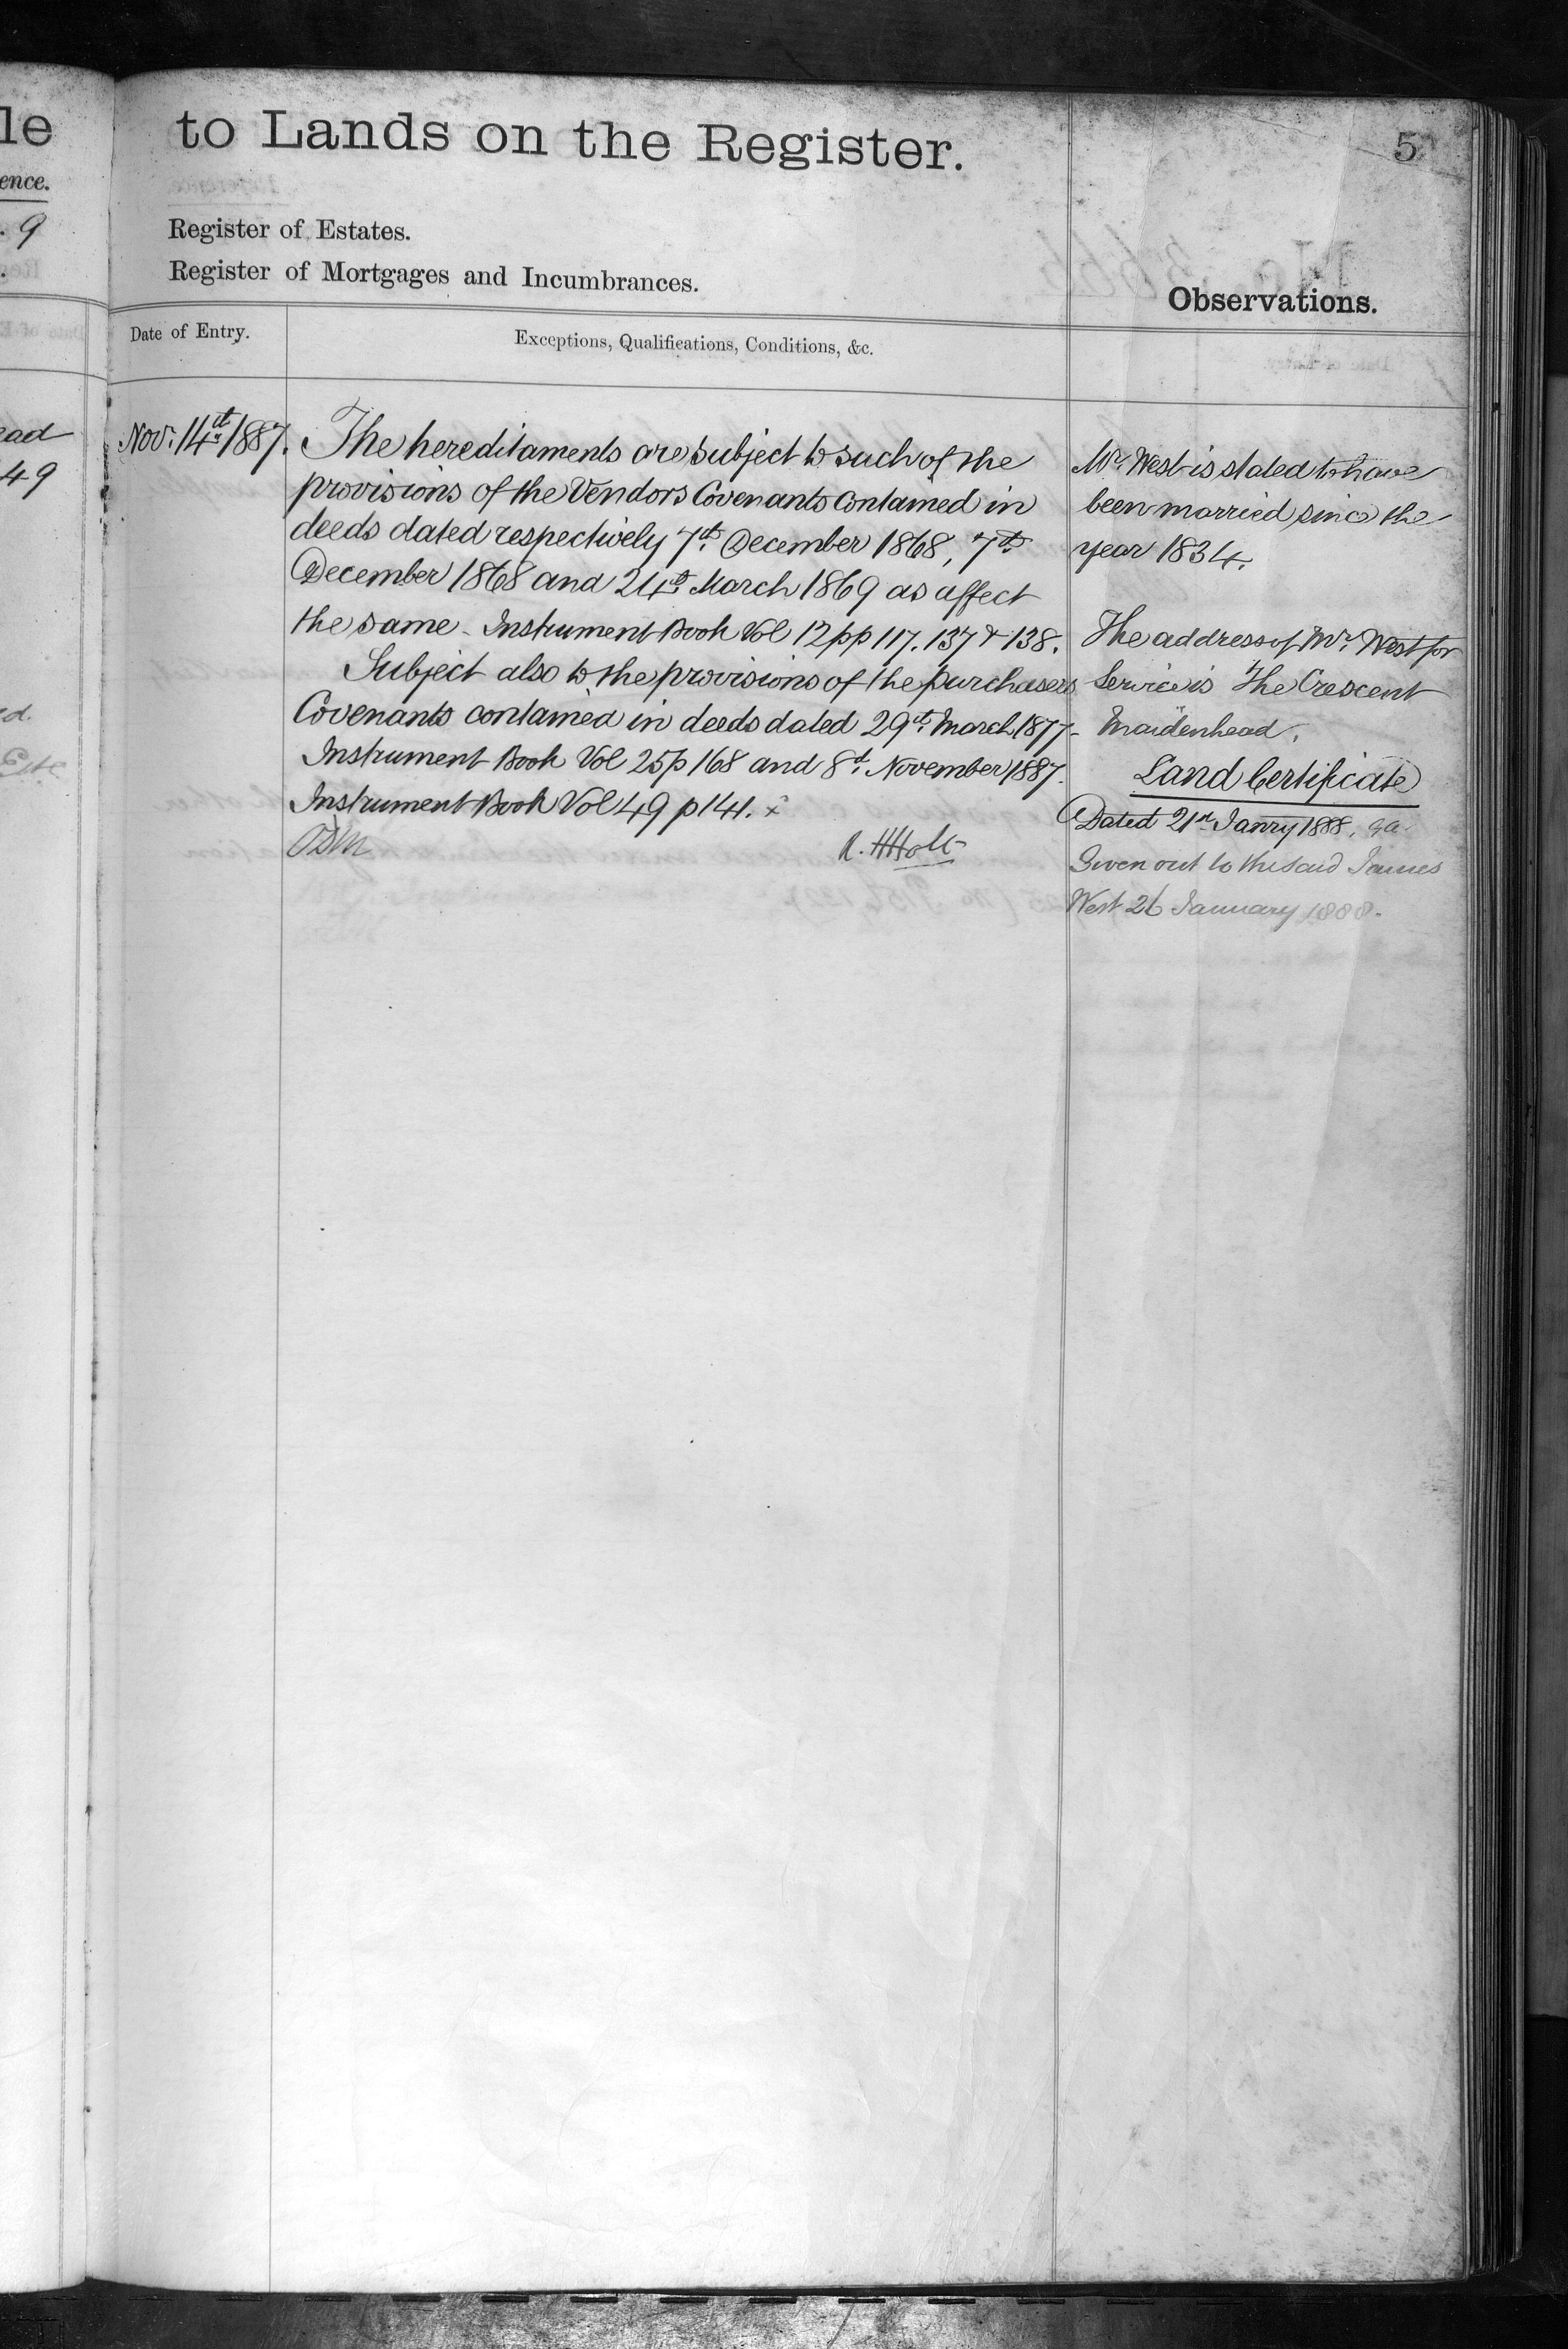 le
ence.
. 9
ead
49
ed.
to Lands on the Register.
5
Register of Estates.
Register of Mortgages and Incumbrances.
Observations.
Date of Entry.
Exceptions, Qualifications, Conditions, &c.
Nov. 14th 1887.
The hereditaments are subject to such of the
provisions of the Vendors Covenants contained in
deeds dated respectively 7th December 1868, 7th
December 1868 and 24th March 1869 as affect
the same - Instrument Book Vol 12 pp 117. 137 & 138.
Subject also to the provisions of the purchasers
Covenants contained in deeds dated 29th March 1877-
Instrument Book Vol 25 p 168 and 8th November 1887.
Instrument Book Vol 49 p 141. x
R. H Holt
Mr. West is stated to have
been married since the
year 1834.
The address of Mr. West for
Service is The Crescent
Maidenhead.
Land Certificate
Dated 21st Janry 1888.
Given out to the said James
West 26 January 1888.